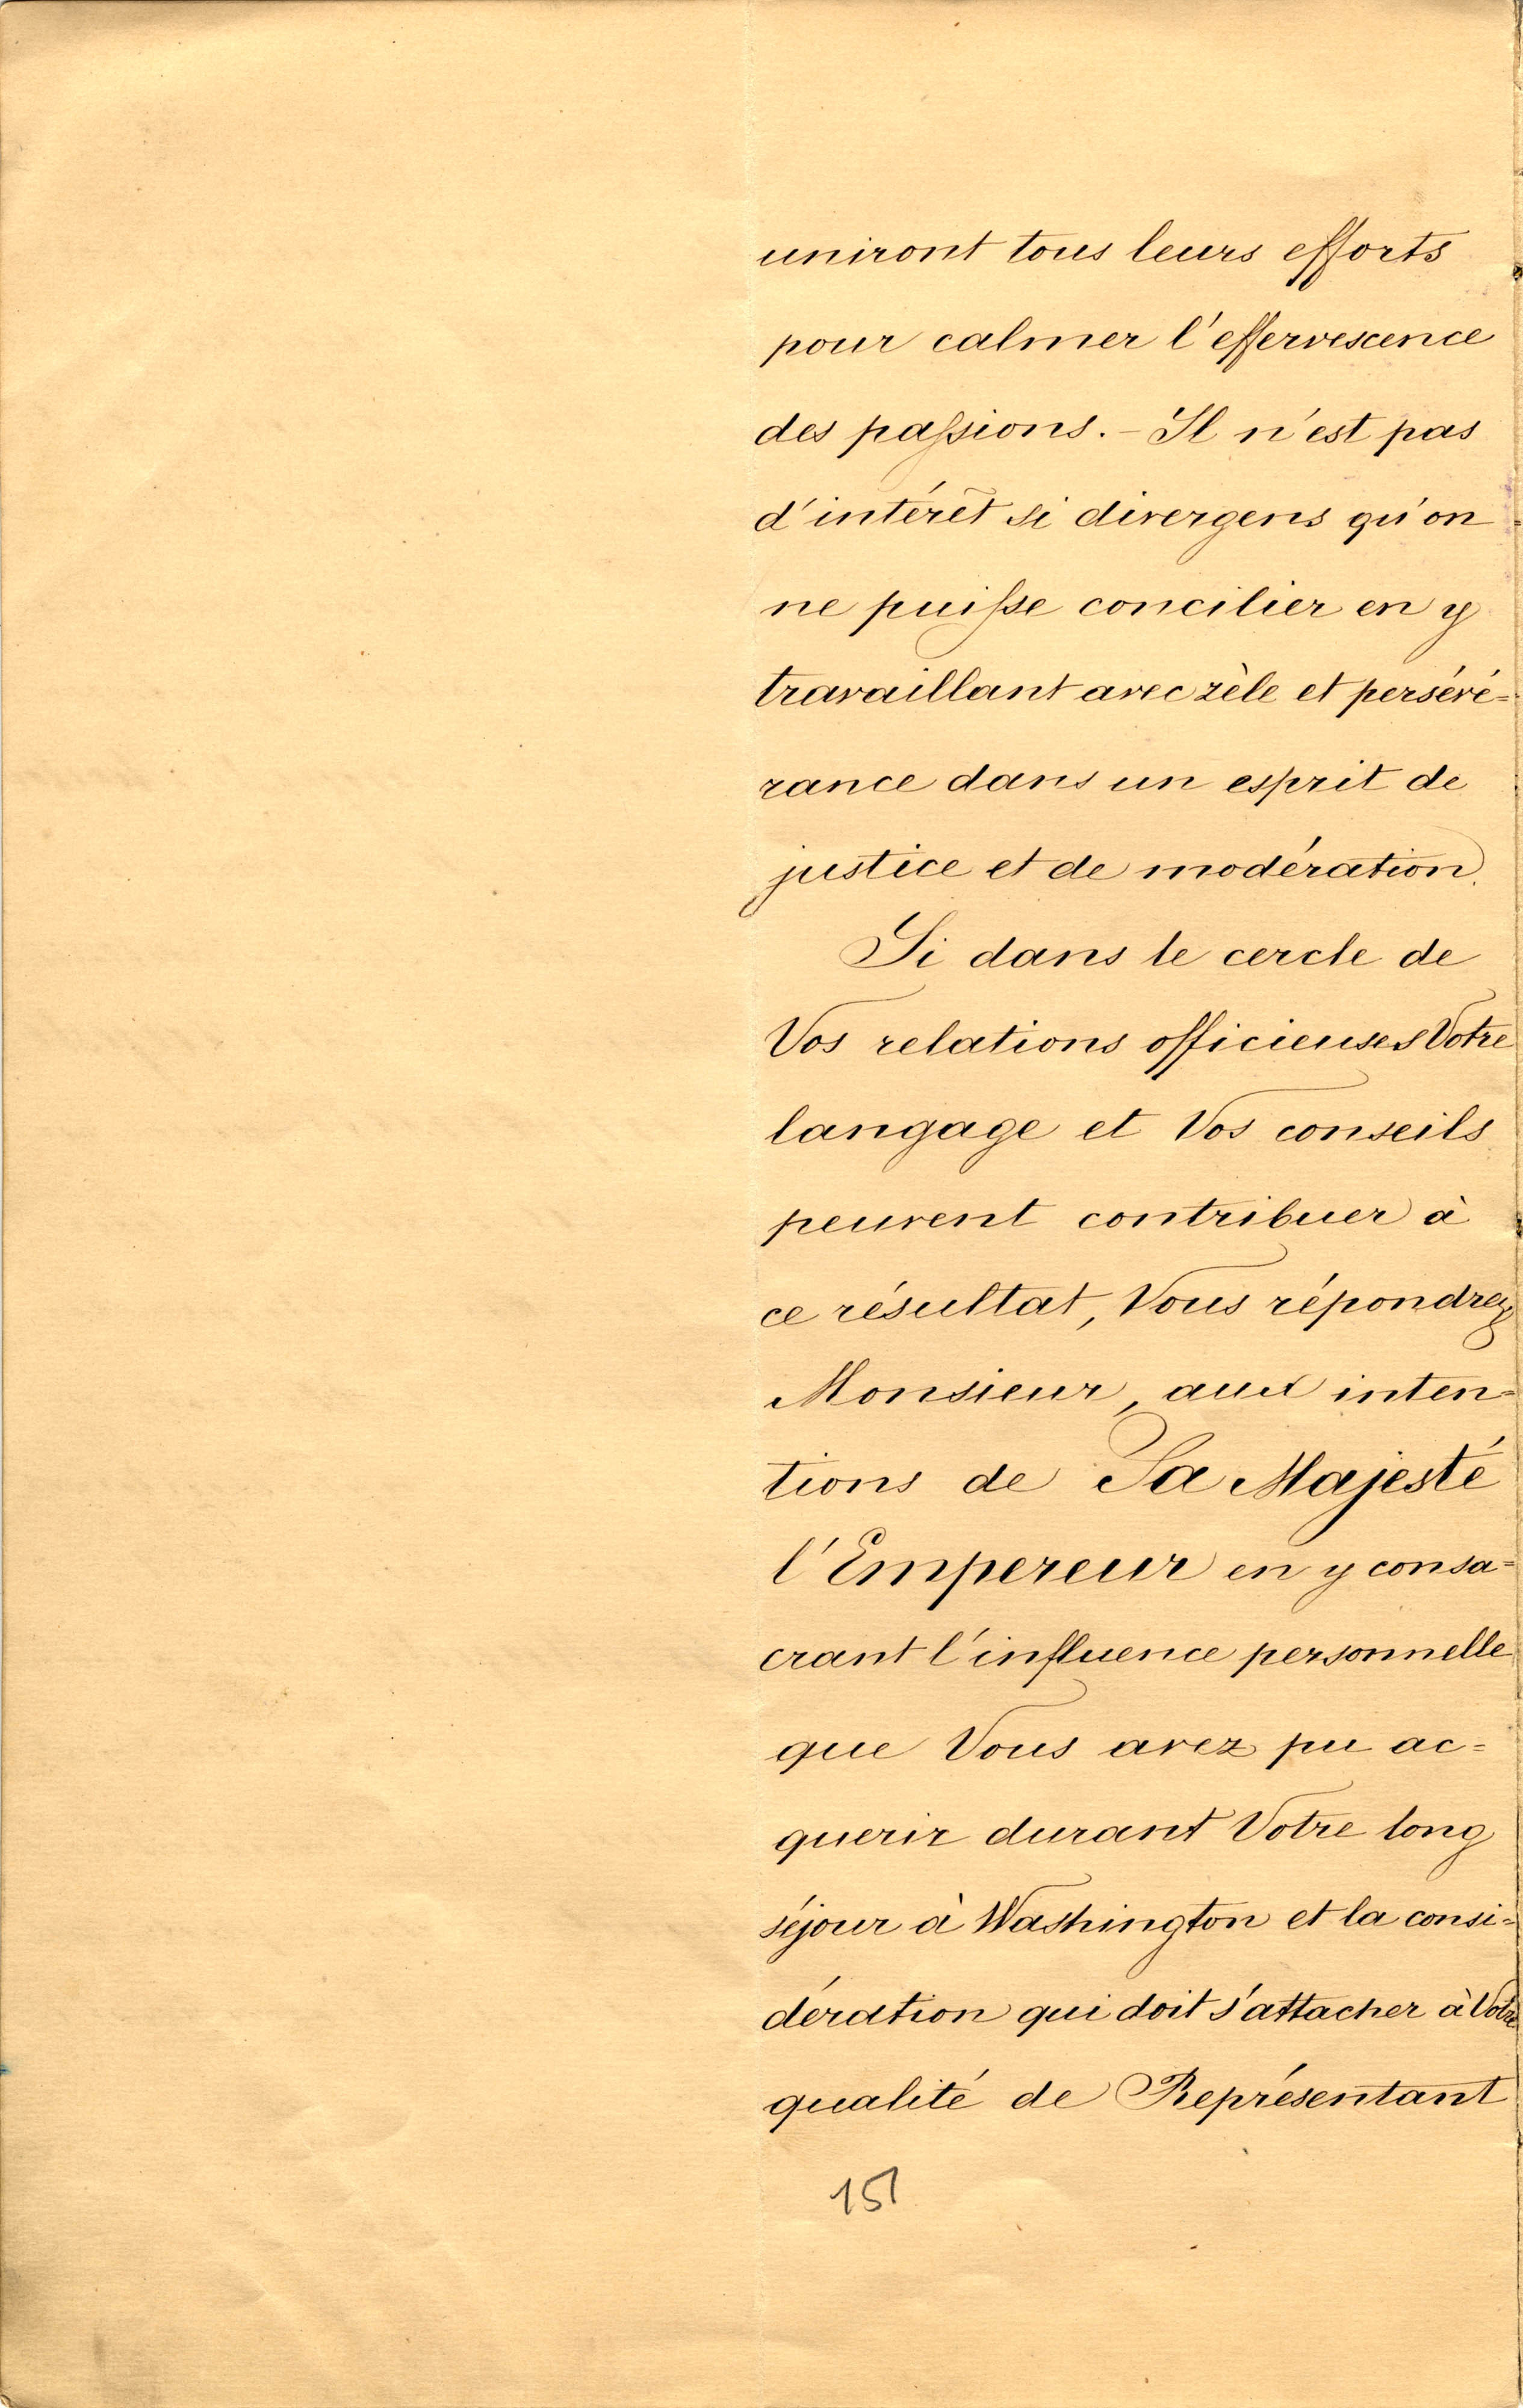 uniront tous leurs efforts
pour calmer l'effervescence
des passions. – Il n'est pas
d'intérêt si divergens qu'on
ne puisse concilier en y
travaillant avec zèle et persévé=
rance dans un esprit de
justice et de modération.
Si dans le cercle de
Vos relations officieuses Votre
langage et Vos conseils
peuvent contribuer à
ce résultat, Vous répondrez
Monsieur, aux inten=
tions de Sa Majesté
l'Empereur en y consa=
crant l'influence personnelle
que Vous avez pu ac=
querir durant Votre long
séjour à Washington et la consi=
dération qui doit s'attacher à Votre
qualité de Représentant
151